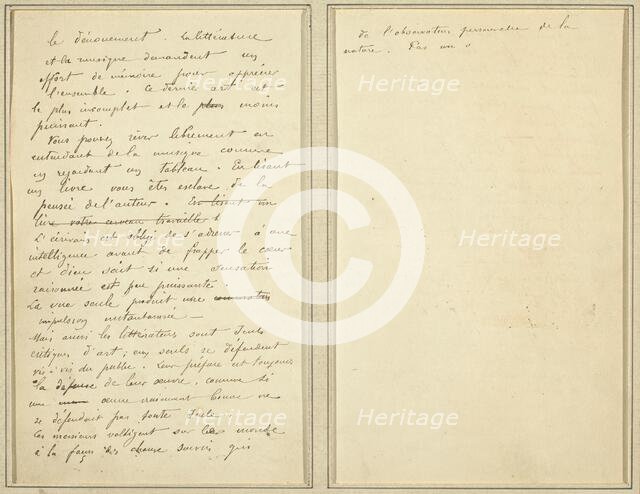 le dénouement. La littérature
et la musique demandent un
effort de mémoire pour apprécier
l'ensemble. Ce dernier art est
le plus incomplet et le plus moins
puissant.
Vous pouvez rêver librement en
entendant de la musique comme
en regardant un tableau. En lisant
un livre vous êtes esclave de la
pensée de l'auteur. En lisant un
livre votre cerveau travaille
L'écrivain est obligé de s'adresser à une
intelligence avant de frapper le cœur
et Dieu sait si une sensation
raisonnée est peu puissante.
La vue seule produit une
impulsion instantanée —
Mais aussi les littérateurs sont seuls
critiques d'art; eux seuls se défendent
vis à vis du public. Leur préface est toujours
la défense de leur œuvre, comme si
une œuvre vraiment bonne ne
se défendait pas toute seule.
Ces messieurs voltigent sur le monde
à la façon des chauve souris qui
de l'observation personnelle de la
nature. Pas un
Heritage
Heritage
Heritage
Heritage
Heritage
Heritage